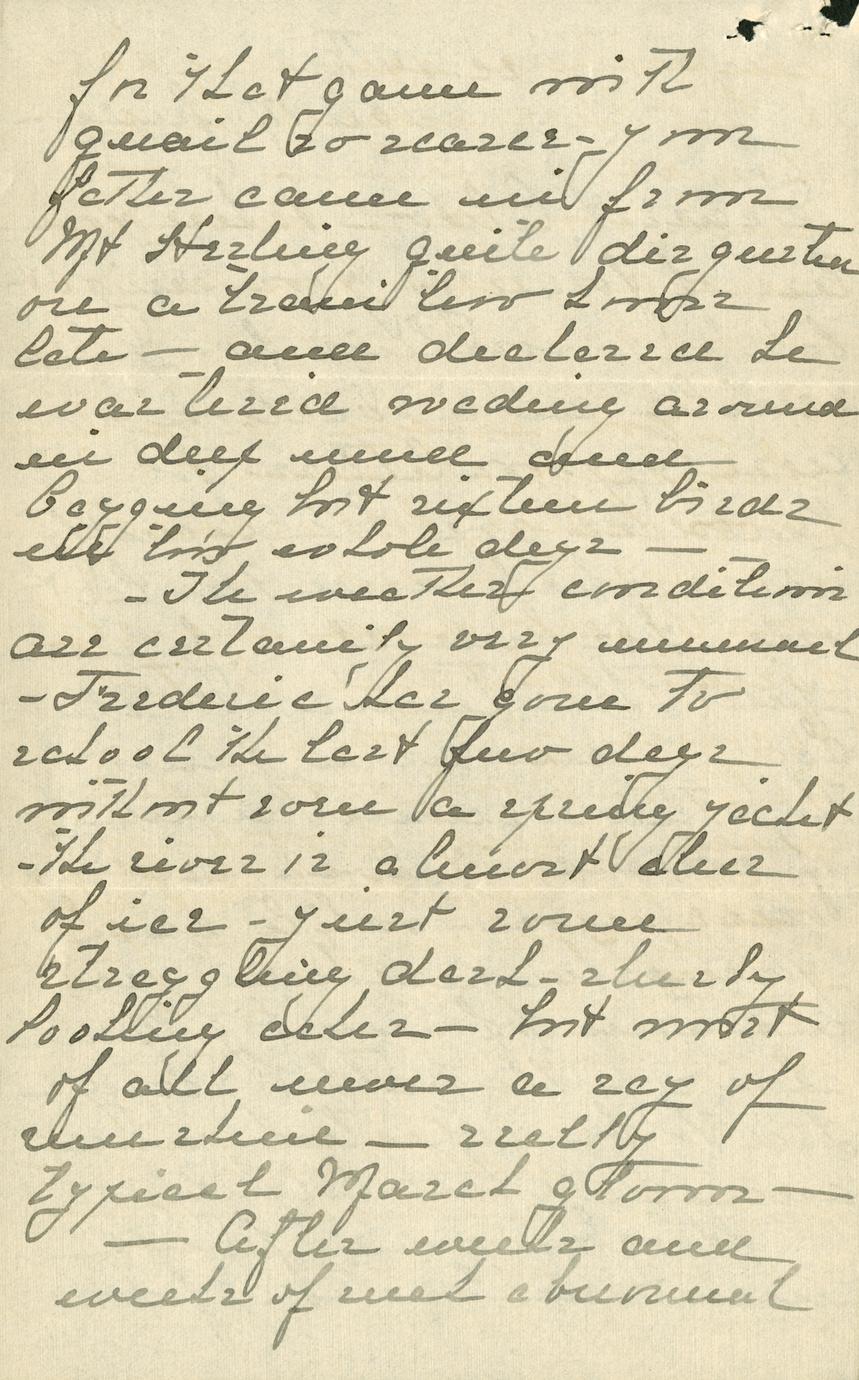 for that game with
quail so scarce - your
father came in from
Mt Sterling quite disgusted
on a train two hours
late — and declared he
was tired wading around
in deep mud and
bagging but sixteen birds
in two whole days —
- The weather conditions
are certainly very unusual
- Frederic has gone to
school the last few days
without even a spring jacket
- the river is almost clear
of ice - just some
straggling dark-slushy
looking cakes — but worst
of all never a ray of
sunshine — really
typical March gloom —
— After weeks and
weeks of such abnormal